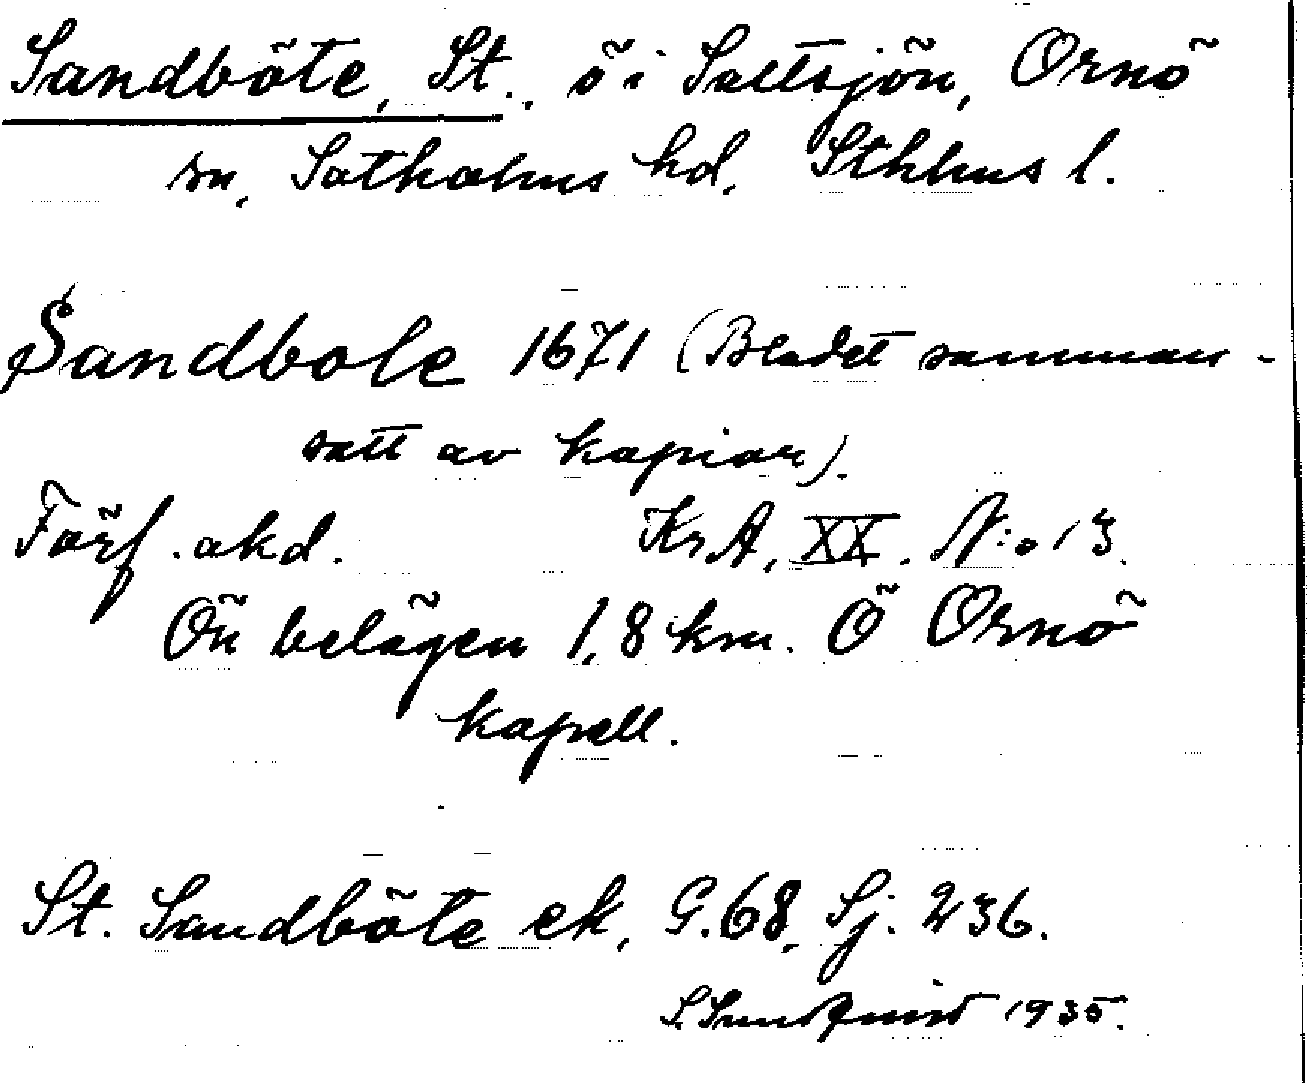 Sandböte, St., ö i Saltsjön, Ornö
sn, Sotholms hd, Sthlms l.
Sandbole 1671 (Bladet samman-
satt av kopior).
Förf. okd. KrA, XX. N:o 13.
Ön belägen 1,8 km. Ö Ornö
kapell.
St. Sandböte ek, G. 68, Sj. 236.
S. Sundqvist 1935.